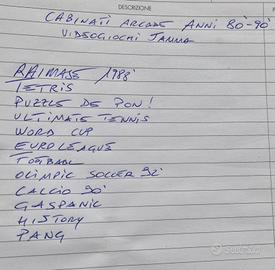 DESCRIZIONE
CABINATI ARCADE ANNI 80'-90'
VIDEOGIOCHI JAMMA
RAIMAIS 1988
TETRIS
PUZZLE DE PON!
ULTIMATE TENNIS
WORD CUP
EUROLEAGUE
FOOTBALL
OLIMPIC SOCCER 92'
CALCIO 90'
GASPANIC
HISTORY
PANG
SUBITO